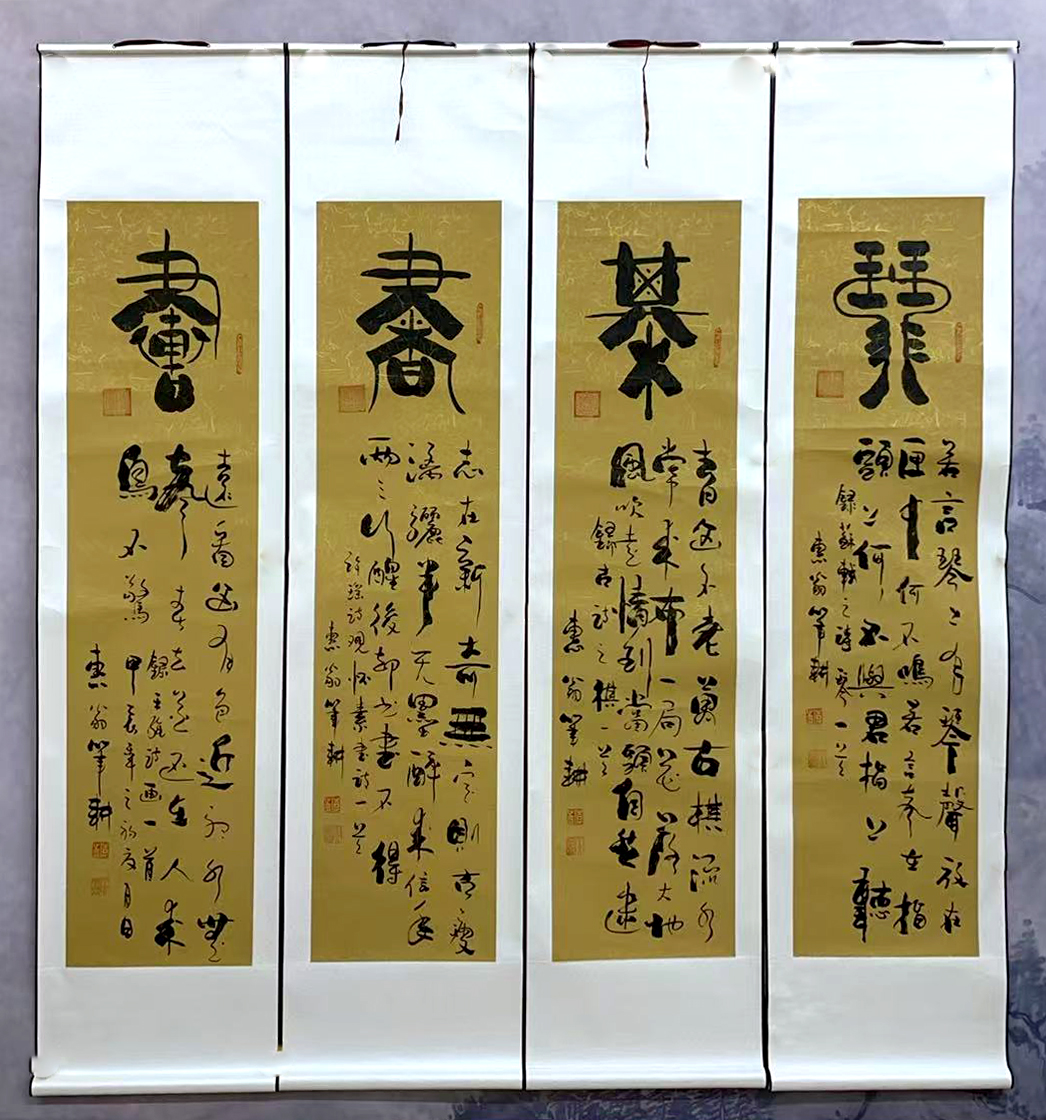 琴
若言琴上有琴聲放在
匣中何不鳴若言聲在指
頭上何不與君指上聽
錄蘇軾之詩琴一首
惠翁筆耕
棊
青山不老萬古棋流水
常来布一局花落大地
風吹去情到當頭自
錄古詩之棋一首
惠翁筆耕
書
志在新奇無定則古瘦
漓驪半无墨醉来信手
兩三行醒後却书書不得
許瑤詩观怀素書詩一首
惠翁筆耕
畫
遠看山有色近聽水無
聲春去花还在人来
鳥不驚
錄王維詩画一首
甲辰年之初夏月日
惠翁筆耕